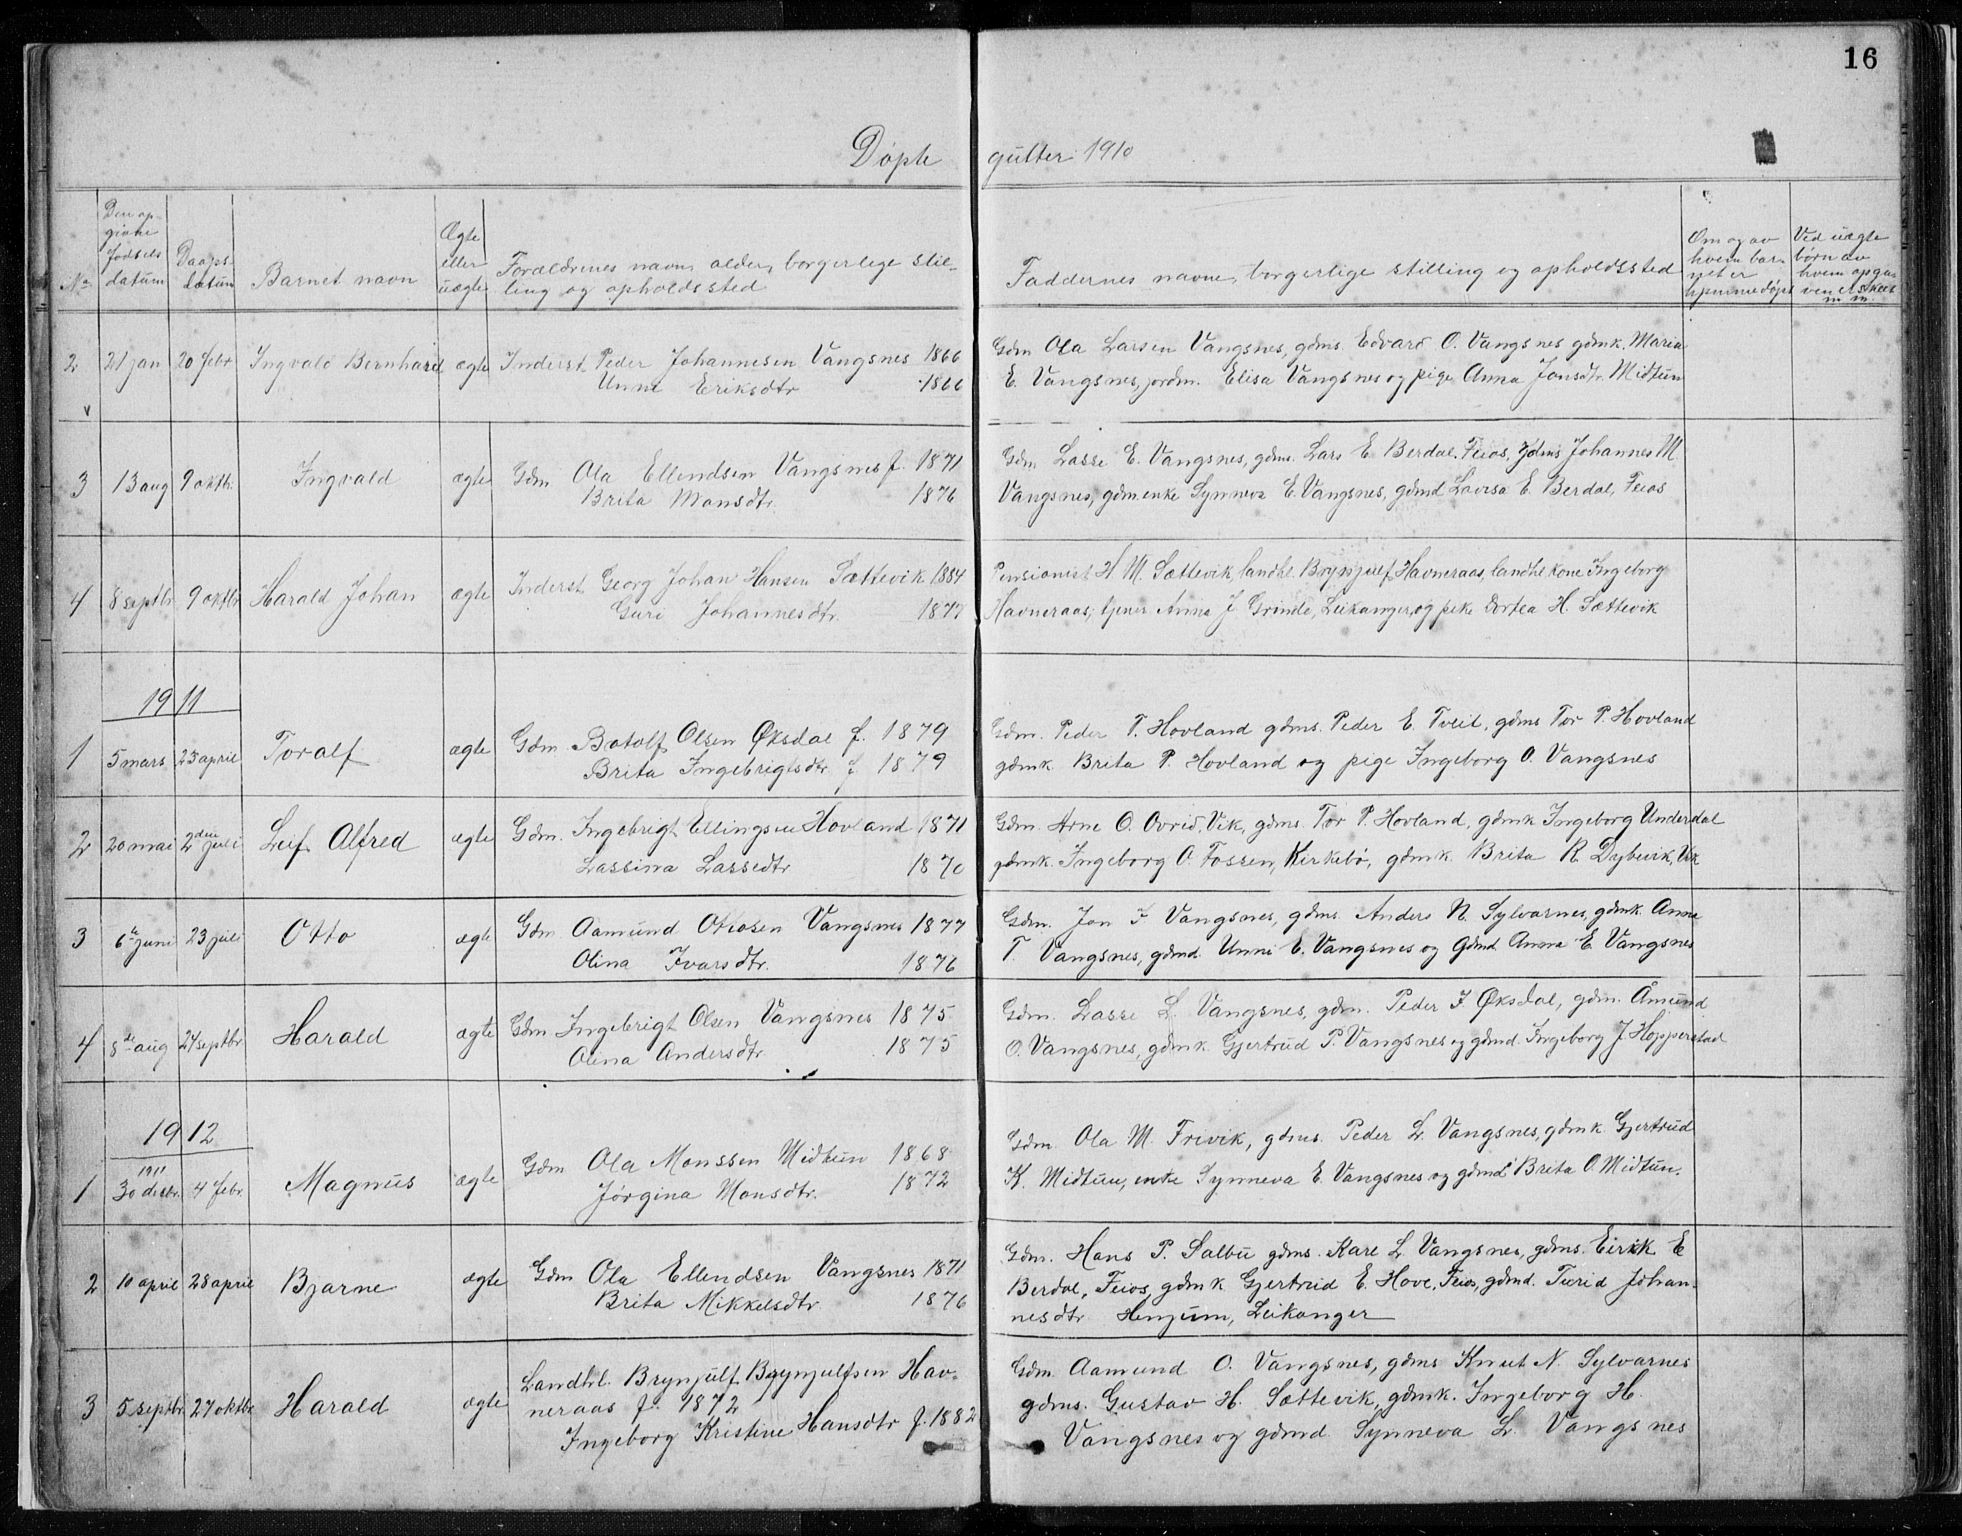 16
Døpte gutter 1910
No
Den op-
givne
fødsels
datum
Daaps
datum
Barnet navn
Ægte
eller
uægte
Forældrenes navn, alder, borgerlige stil-
ling og opholdssted
Faddernes navne, borgerlige stilling og opholdssted
Om og av
hvem bar-
net er
hjemmedøpt
Ved uægte
børn av
hvem opga-
ven er skeet
m. m.
2 21 jan 20 febr Ingvald Bernhard ægte Inderst Peder Johannesen Vangsnes 1866
Unni Eriksdtr 1866
Gdm Ola Larsen Vangsnes, gdms. Edvard O. Vangsnes gdmk. Maria
E. Vangsnes, jordm. Elisa Vangsnes og pige Anna Jonsdtr. Midtun
3 13 aug 9 oktb. Ingvald ægte Gdm Ola Ellendsen Vangsnes f. 1871
Brita Monsdtr. 1876
Gdm Lasse E. Vangsnes, gdms. Lars E. Berdal, Feios, gdms Johannes M.
Vangsnes, gdm.enke Synneva E. Vangsnes, gdmd Lovisa E. Berdal, Feios
4 8 septbr 9 oktbr Harald Johan ægte Inderst Georg Johan Hansen Sættevik 1884
Guri Johannesdtr. 1877
Pensionist H. M. Sættevik, landhl. Brynjulf Havneraas, landhl kone Ingeborg
Havneraas, tjener Anna J. Grinde, Leikanger, og pike Dortea H. Sættevik
1911
1 5 mars 23 april Toralf ægte Gdm Botolf Olsen Øksdal f. 1879
Brita Ingebrigtsdtr f 1879
Gdm. Peder T. Hovland gdms. Peder E. Tveit, gdms Tor P. Hovland
gdmk. Brita P. Hovland og pige Ingeborg O. Vangsnes
2 20 mai 2den juli Leif Alfred ægte Gdm. Ingebrigt Ellingsen Hovland 1871
Lassina Lassedtr 1870
Gdm. Arne O. Ovrid, Vik, gdms. Tor P. Hovland, gdmk Ingeborg Underdal
gdmk. Ingeborg O. Fossen, Kirkebø, gdmk. Brita R. Dybevik, Vik
3 6te juni 23 juli Otto ægte Gdm Aamund Ottosen Vangsnes 1877
Olina Ivarsdtr. 1876
Gdm. Jon I Vangsnes, gdms. Anders N. Sylvarnes, gdmk. Anna
T. Vangsnes, gdmd. Unni E. Vangsnes og gdmd Anna E. Vangsnes
4 8de aug 24 septbr Harald ægte Gdm Ingebrigt Olsen Vangsnes 1875
Olina Andersdtr. 1875
Gdm. Lasse L. Vangsnes, gdm. Peder I Øksdal, gdm. Amund
O. Vangsnes, gdmk. Gjertrud P. Vangsnes og gdmd. Ingeborg J. Hopperstad
1912
1911
1 30 decbr. 4 febr. Magnus ægte Gdm Ola Monssen Midtun 1868
Jørgina Monsdtr. 1872
Gdm Ola M. Frivik, gdms. Peder L. Vangsnes, gdmk. Gjertrud
K. Midtun, enke Synneva E. Vangsnes og gdmd Brita O. Midtun.
2 10 april 28 april Bjarne ægte Gdm Ola Ellendsen Vangsnes 1871
Brita Mikkelsdtr. 1876
Gdm. Hans P. Salbu gdms. Kare L. Vangsnes, gdms. Eirik E
Berdal, Feios, gdmk Gjertrud E. Hove, Feios, gdmd. Turid Johan-
nesdtr Henjum, Leikanger
3 5 septbr 27 oktbr Harald ægte Landhl. Brynjulf Brynjulfsen Hav-
neraas f. 1872
Ingeborg Kristine Hansdtr f. 1882
Gdm Aamund O. Vangsnes, gdms Knut N. Sylvarnes
gdms. Gustav H. Sættevik, gdmk. Ingeborg H.
Vangsnes og gdmd Synneva L. Vangsnes